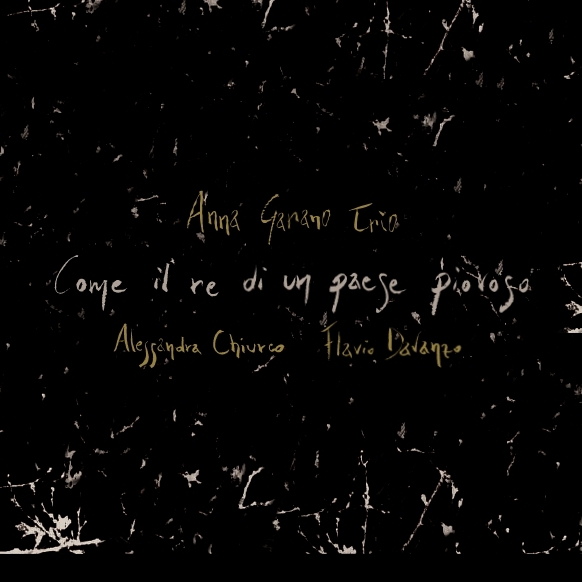 Anna Garano Trio
Come il re di un paese piovoso
Alessandra Chiurco Flavio Davanzo